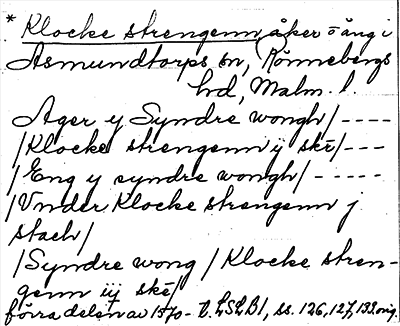 * Klocke strengenn, åker o äng i
Asmundtorps sn, Rönnebergs
hd, Malm. l.
Ager y Syndre wongh/----
/Klocke strengenn ij skè/---
/Eng y syndre wongh/-----
/Vnder Klocke strengenn j
stach/
/Syndre wong/Klocke stren-
genn iij skè/
förra delen av 1570- t. LSLB1, ss. 126, 127, 133. orig.